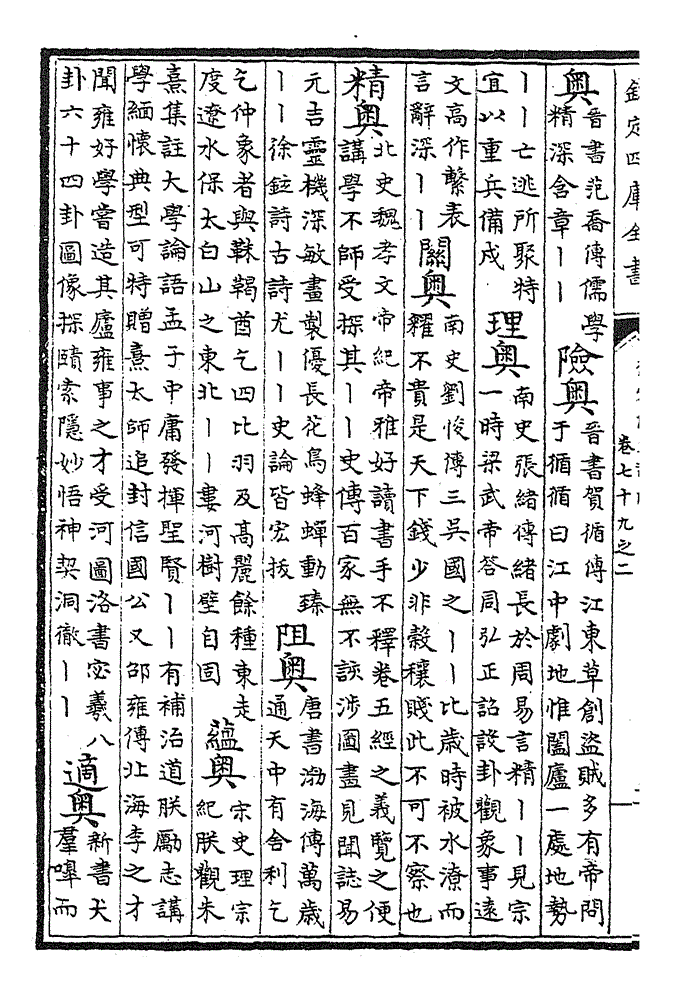 欽定四庫全書
卷七十九之二
奥
晉書范喬傳儒學
精深含章丨丨
險奥
晉書賀循傳江東草創盜賊多有帝問
于循循曰江中劇地惟闔廬一處地勢
丨丨亡逃所聚特
宜以重兵備戍
理奥
南史張緒傳緒長於周易言精丨丨見宗
一時梁武帝答周弘正詔設卦觀象事遠
文高作繫表
言辭深丨丨
關奥
南史劉悛傳三吳國之丨丨比歲時被水潦而
糴不貴是天下錢少非穀穰賤此不可不察也
精奥
北史魏孝文帝紀帝雅好讀書手不釋卷五經之義覽之便
講學不師受探其丨丨史傳百家無不該涉圖畫見聞誌易
元吉靈機深敏畫製優長花鳥蜂蟬動臻
丨丨徐鉉詩古詩尤丨丨史論皆宏拔
阻奥
唐書渤海傳萬歲
通天中有舍利乞
乞仲象者與靺鞨酋乞四比羽及高麗餘種東走
度遼水保太白山之東北丨丨婁河樹壁自固
蘊奥
宋史理宗
紀朕觀朱
熹集註大學論語孟子中庸發揮聖賢丨丨有補治道朕勵志講
學緬懷典型可特贈熹太師追封信國公又邵雍傳北海李之才
聞雍好學嘗造其廬雍事之才受河圖洛書宓羲八
卦六十四卦圖像探賾索隱妙悟神契洞徹丨丨
適奥
新書犬
羣嘷而